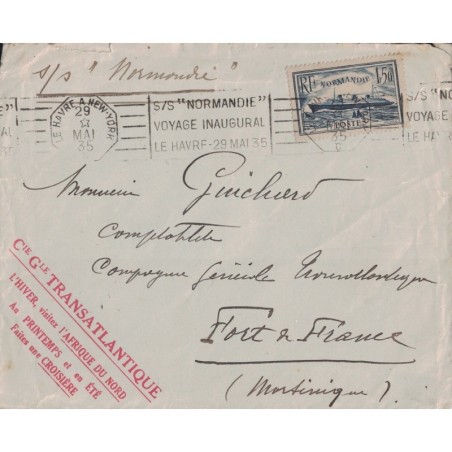 s/s "Normandie"
LE HAVRE A NEW-YORK
29
MAI
35
S/S "NORMANDIE"
VOYAGE INAUGURAL
LE HAVRE-29 MAI 35
RF NORMANDIE 1f50
POSTES
35
"NORMANDIE
VOYAGE
LE HAVRE
Monsieur Guichard
Comptable
Compagnie Générale Transatlantique
Fort de France
(Martinique).
Cie Gle TRANSATLANTIQUE
L'HIVER, visitez l'AFRIQUE DU NORD
Au PRINTEMPS et en ÉTÉ
Faites une CROISIÈRE